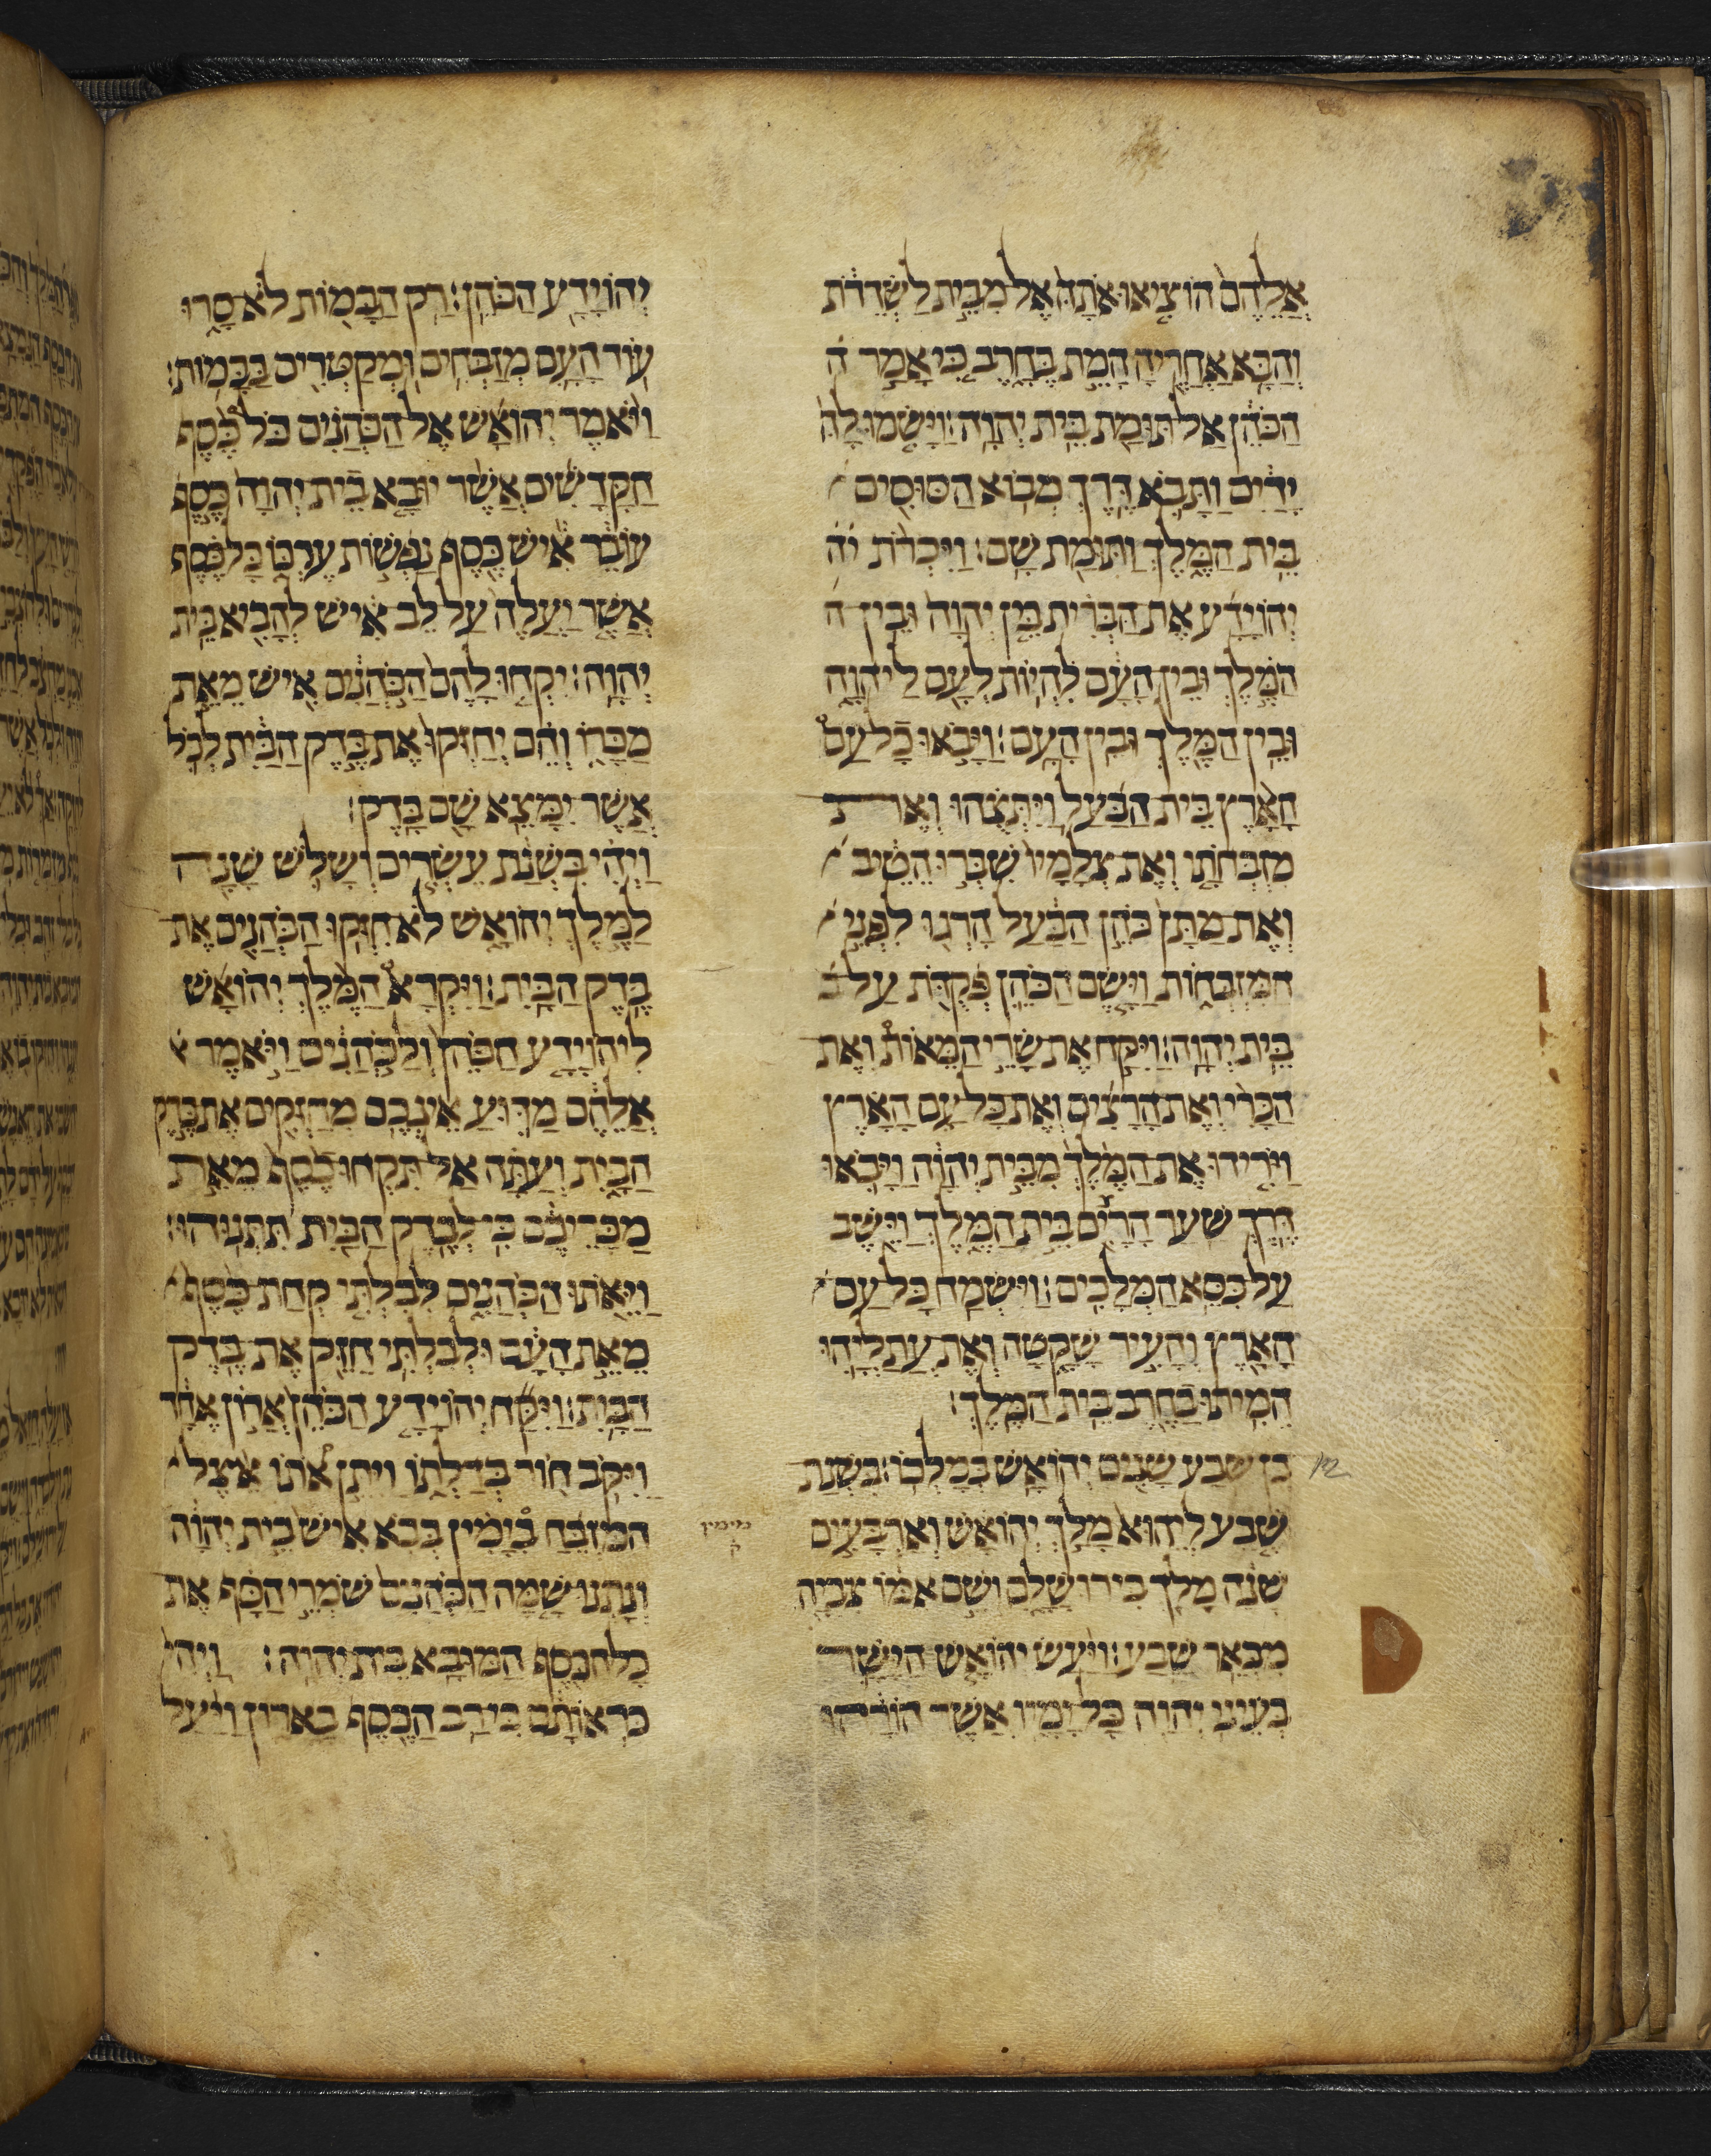 אֲלֵהֶם הוֹצִיאוּ אֹתָהּ אֶל מִבֵּית לַשְּׂדֵרֹת
וְהַבָּא אַחֲרֶיהָ הָמֵת בֶּחָרֶב כִּי אָמַר ה
הַכֹּהֵן אַל תּוּמַת בֵּית יְהוָה׃ וַיָּשִׂמוּ לָהּ
יָדַיִם וַתָּבֹא דֶּרֶךְ מְבוֹא הַסּוּסִים
בֵּית הַמֶּלֶךְ וַתּוּמַת שָׁם׃ וַיִּכְרֹת יה
יְהוֹיָדָע אֶת הַבְּרִית בֵּין יְהוָה וּבֵין ה
הַמֶּלֶךְ וּבֵין הָעָם לִהְיוֹת לְעָם לַיהוָה
וּבֵין הַמֶּלֶךְ וּבֵין הָעָם׃ וַיָּבֹאוּ כָל עַם
הָאָרֶץ בֵּית הַבַּעַל וַיִּתְּצֻהוּ וְאֶת
מִזְבְּחֹתָו וְאֶת צְלָמָיו שִׁבְּרוּ הֵיטֵיב
וְאֵת מַתָּן כֹּהֵן הַבַּעַל הָרְגוּ לִפְנֵי
הַמִּזְבְּחוֹת וַיָּשֶׂם הַכֹּהֵן פְּקֻדֹּת עַל ב
בֵּית יְהוָה׃ וַיִּקַּח אֶת שָׂרֵי הַמֵּאוֹת וְאֶת
הַכָּרִי וְאֶת הָרָצִים וְאֵת כָּל עַם הָאָרֶץ
וַיֹּרִידוּ אֶת הַמֶּלֶךְ מִבֵּית יְהוָה וַיָּבֹאוּ
דֶּרֶךְ שַׁעַר הָרָצִים בֵּית הַמֶּלֶךְ וַיֵּשֶׁב
עַל כִּסֵּא הַמְּלָכִים׃ וַיִּשְׂמַח כָּל עַם
הָאָרֶץ וְהָעִיר שָׁקָטָה וְאֶת עֲתַלְיָהוּ
הֵמִיתוּ בַחֶרֶב בֵּית הַמֶּלֶךְ׃
בֶּן שֶׁבַע שָׁנִים יְהוֹאָשׁ בְּמָלְכוֹ׃ בִּשְׁנַת
12
שֶׁבַע לְיֵהוּא מָלַךְ יְהוֹאָשׁ וְאַרְבָּעִים
שָׁנָה מָלַךְ בִּירוּשָׁלִָם וְשֵׁם אִמּוֹ צִבְיָה
מִבְּאֵר שָׁבַע׃ וַיַּעַשׂ יְהוֹאָשׁ הַיָּשָׁר
בְּעֵינֵי יְהוָה כָּל יָמָיו אֲשֶׁר הוֹרָהוּ
יְהוֹיָדָע הַכֹּהֵן׃ רַק הַבָּמוֹת לֹא סָרוּ
עוֹד הָעָם מְזַבְּחִים וּמְקַטְּרִים בַּבָּמוֹת׃
וַיֹּאמֶר יְהוֹאָשׁ אֶל הַכֹּהֲנִים כֹּל כֶּסֶף
הַקֳּדָשִׁים אֲשֶׁר יוּבָא בֵית יְהוָה כֶּסֶף
עוֹבֵר אִישׁ כֶּסֶף נַפְשׁוֹת עֶרְכּוֹ כָּל כֶּסֶף
אֲשֶׁר יַעֲלֶה עַל לֶב אִישׁ לְהָבִיא בֵּית
יְהוָה׃ יִקְחוּ לָהֶם הַכֹּהֲנִים אִישׁ מֵאֵת
מַכָּרוֹ וְהֵם יְחַזְּקוּ אֶת בֶּדֶק הַבַּיִת לְכֹל
אֲשֶׁר יִמָּצֵא שָׁם בָּדֶק׃
וַיְהִי בִּשְׁנַת עֶשְׂרִים וְשָׁלֹשׁ שָׁנָה
לַמֶּלֶךְ יְהוֹאָשׁ לֹא חִזְּקוּ הַכֹּהֲנִים אֶת
בֶּדֶק הַבָּיִת׃ וַיִּקְרָא הַמֶּלֶךְ יְהוֹאָשׁ
לִיהוֹיָדָע הַכֹּהֵן וְלַכֹּהֲנִים וַיֹּאמֶר א
אֲלֵהֶם מַדּוּעַ אֵינְכֶם מְחַזְּקִים אֶת בֶּדֶק
הַבָּיִת וְעַתָּה אַל תִּקְחוּ כֶסֶף מֵאֵת
מַכָּרֵיכֶם כִּי לְבֶדֶק הַבַּיִת תִּתְּנוּהוּ׃
וַיֵּאֹתוּ הַכֹּהֲנִים לְבִלְתִּי קְחַת כֶּסֶף
מֵאֵת הָעָם וּלְבִלְתִּי חַזֵּק אֶת בֶּדֶק
הַבָּיִת׃ וַיִּקַּח יְהוֹיָדָע הַכֹּהֵן אֲרוֹן אֶחָד
וַיִּקֹּב חוֹר בְּדַלְתּוֹ וַיִּתֵּן אֹתוֹ אֵצֶל
הַמִּזְבֵּחַ בַּיָמִין בְּבֹא אִישׁ בֵּית יְהוָה
מימין
ק
וְנָתְנוּ שָׁמָּה הַכֹּהֲנִים שֹׁמְרֵי הַסַּף אֶת
כָּל הַכֶּסֶף הַמּוּבָא בֵּית יְהוָה׃ וַיְהִי
כִּרְאוֹתָם כִּי רַב הַכֶּסֶף בָּאָרוֹן וַיַּעַל